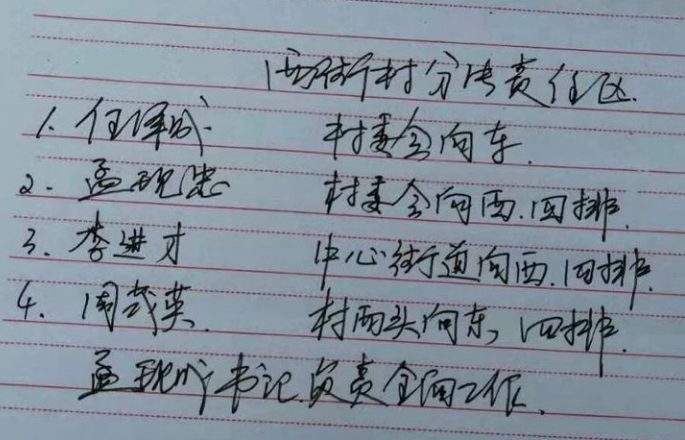 西街村分片责任区
1. 任泽成 村委会向东.
2. 孟现忠 村委会向西.四排.
3. 李进才 中心街道向西.四排.
4. 周茂英. 村西头向东,四排.
孟现成书记负责全面工作.